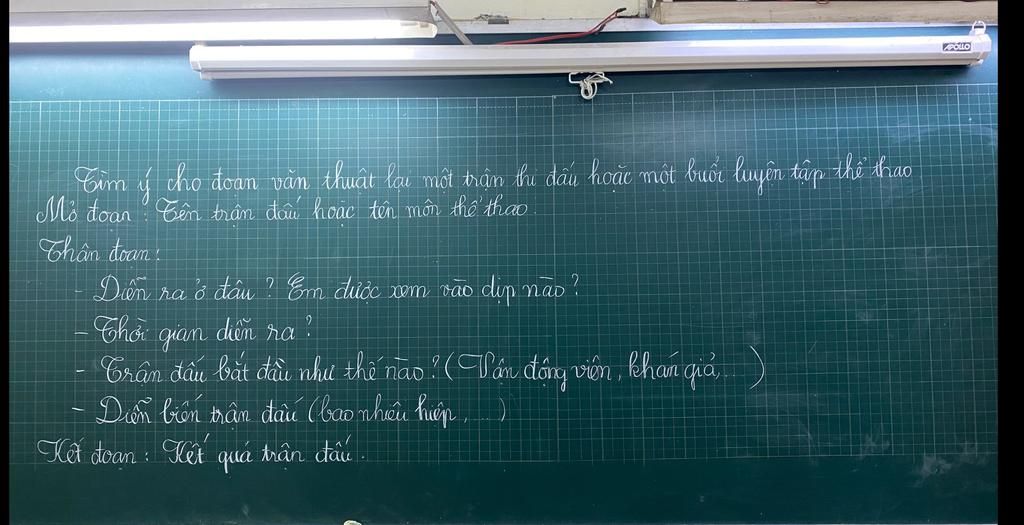 APOLLO
Tìm ý cho đoạn văn thuật lại một trận thi đấu hoặc một buổi luyện tập thể thao
Mở đoạn : Tên trận đấu hoặc tên môn thể thao.
Thân đoạn :
- Diễn ra ở đâu ? Em được xem vào dịp nào ?
- Thời gian diễn ra ?
- Trận đấu bắt đầu như thế nào ? ( Vận động viên, khán giả, ... )
- Diễn biến trận đấu ( bao nhiêu hiệp, ... )
Kết đoạn : Kết quả trận đấu.